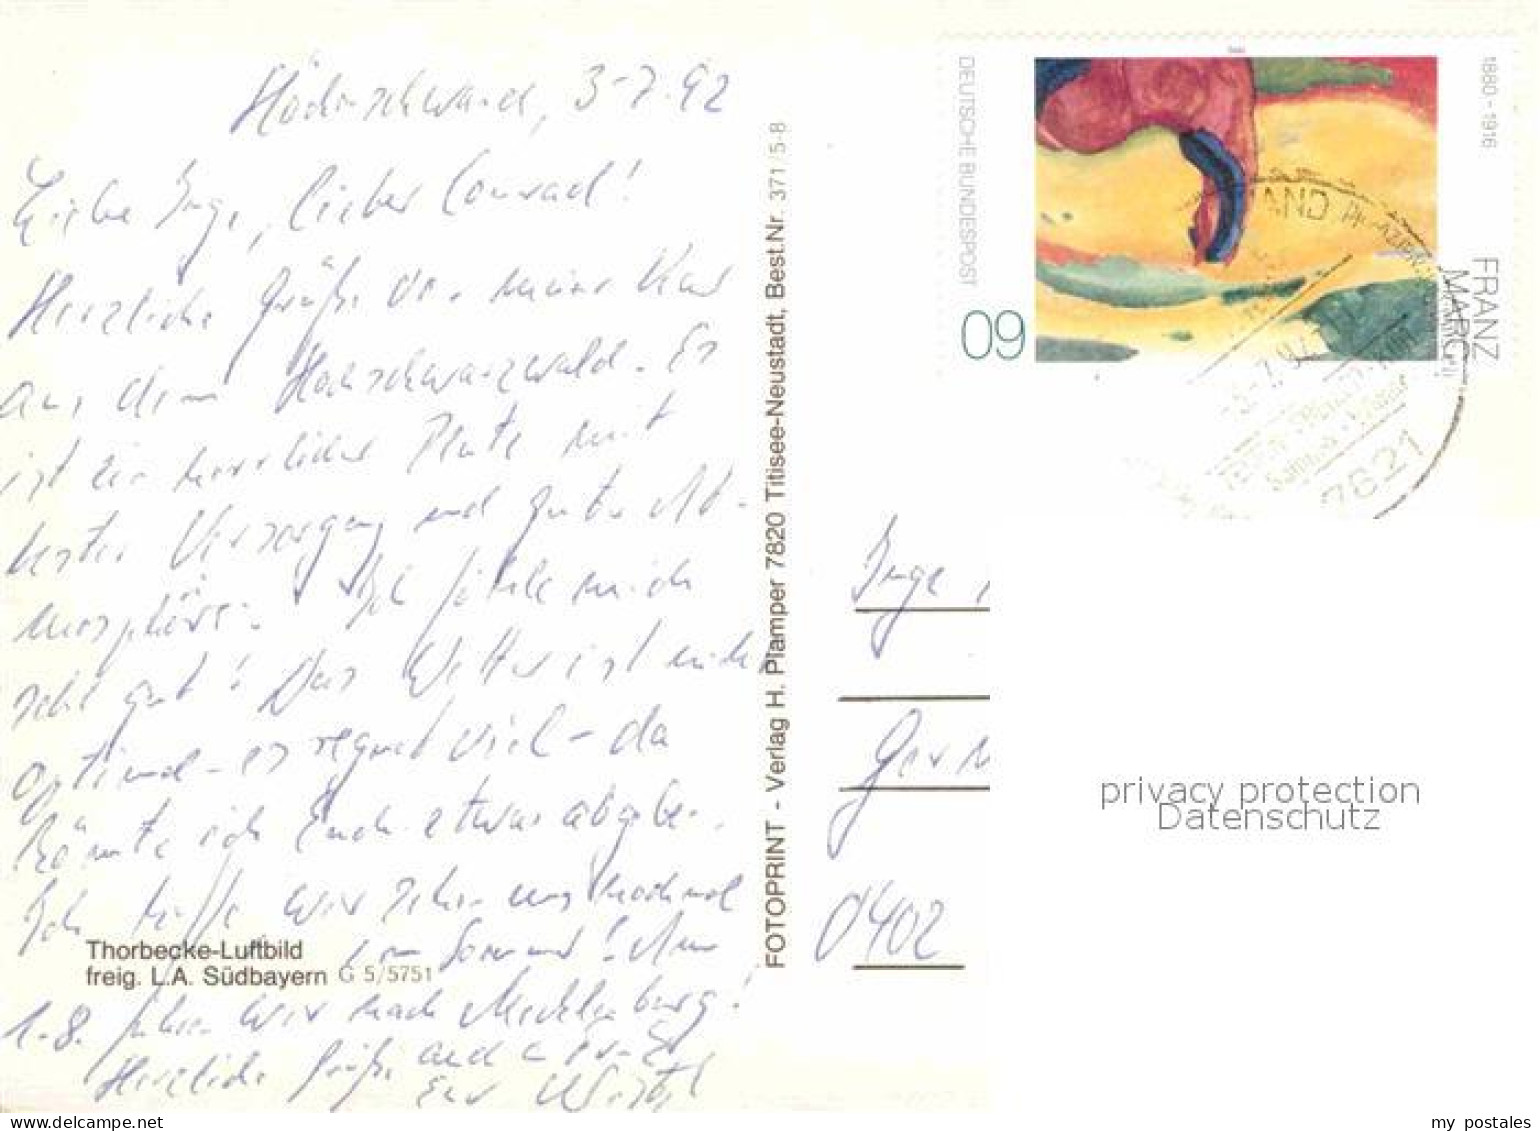 Höchenschwand, 3-7.92
Liebe Inge, lieber Conrad!
Herzliche Grüße von meiner Kur
aus dem Hochschwarzwald. Es
ist ein herrlicher Platz mit
bester Versorgung und guter At-
mosphäre. Ich fühle mich
sehr gut! Das Wetter ist nicht
optimal - es regnet viel - da
könnte ich Euch etwas abgeben.
Ich hoffe wir sehen uns nochmal
im Sommer! Am
1.8. fahren wir nach Mecklenburg!
Herzliche Grüße
Euer
Thorbecke-Luftbild
freig. L.A. Südbayern G 5/5751
FOTOPRINT - Verlag H. Plamper 7820 Titisee-Neustadt, Best.Nr. 371/5-8
DEUTSCHE BUNDESPOST
60
FRANZ
MARC
1880-1916
7821
Inge
0402
privacy protection
Datenschutz
my postales